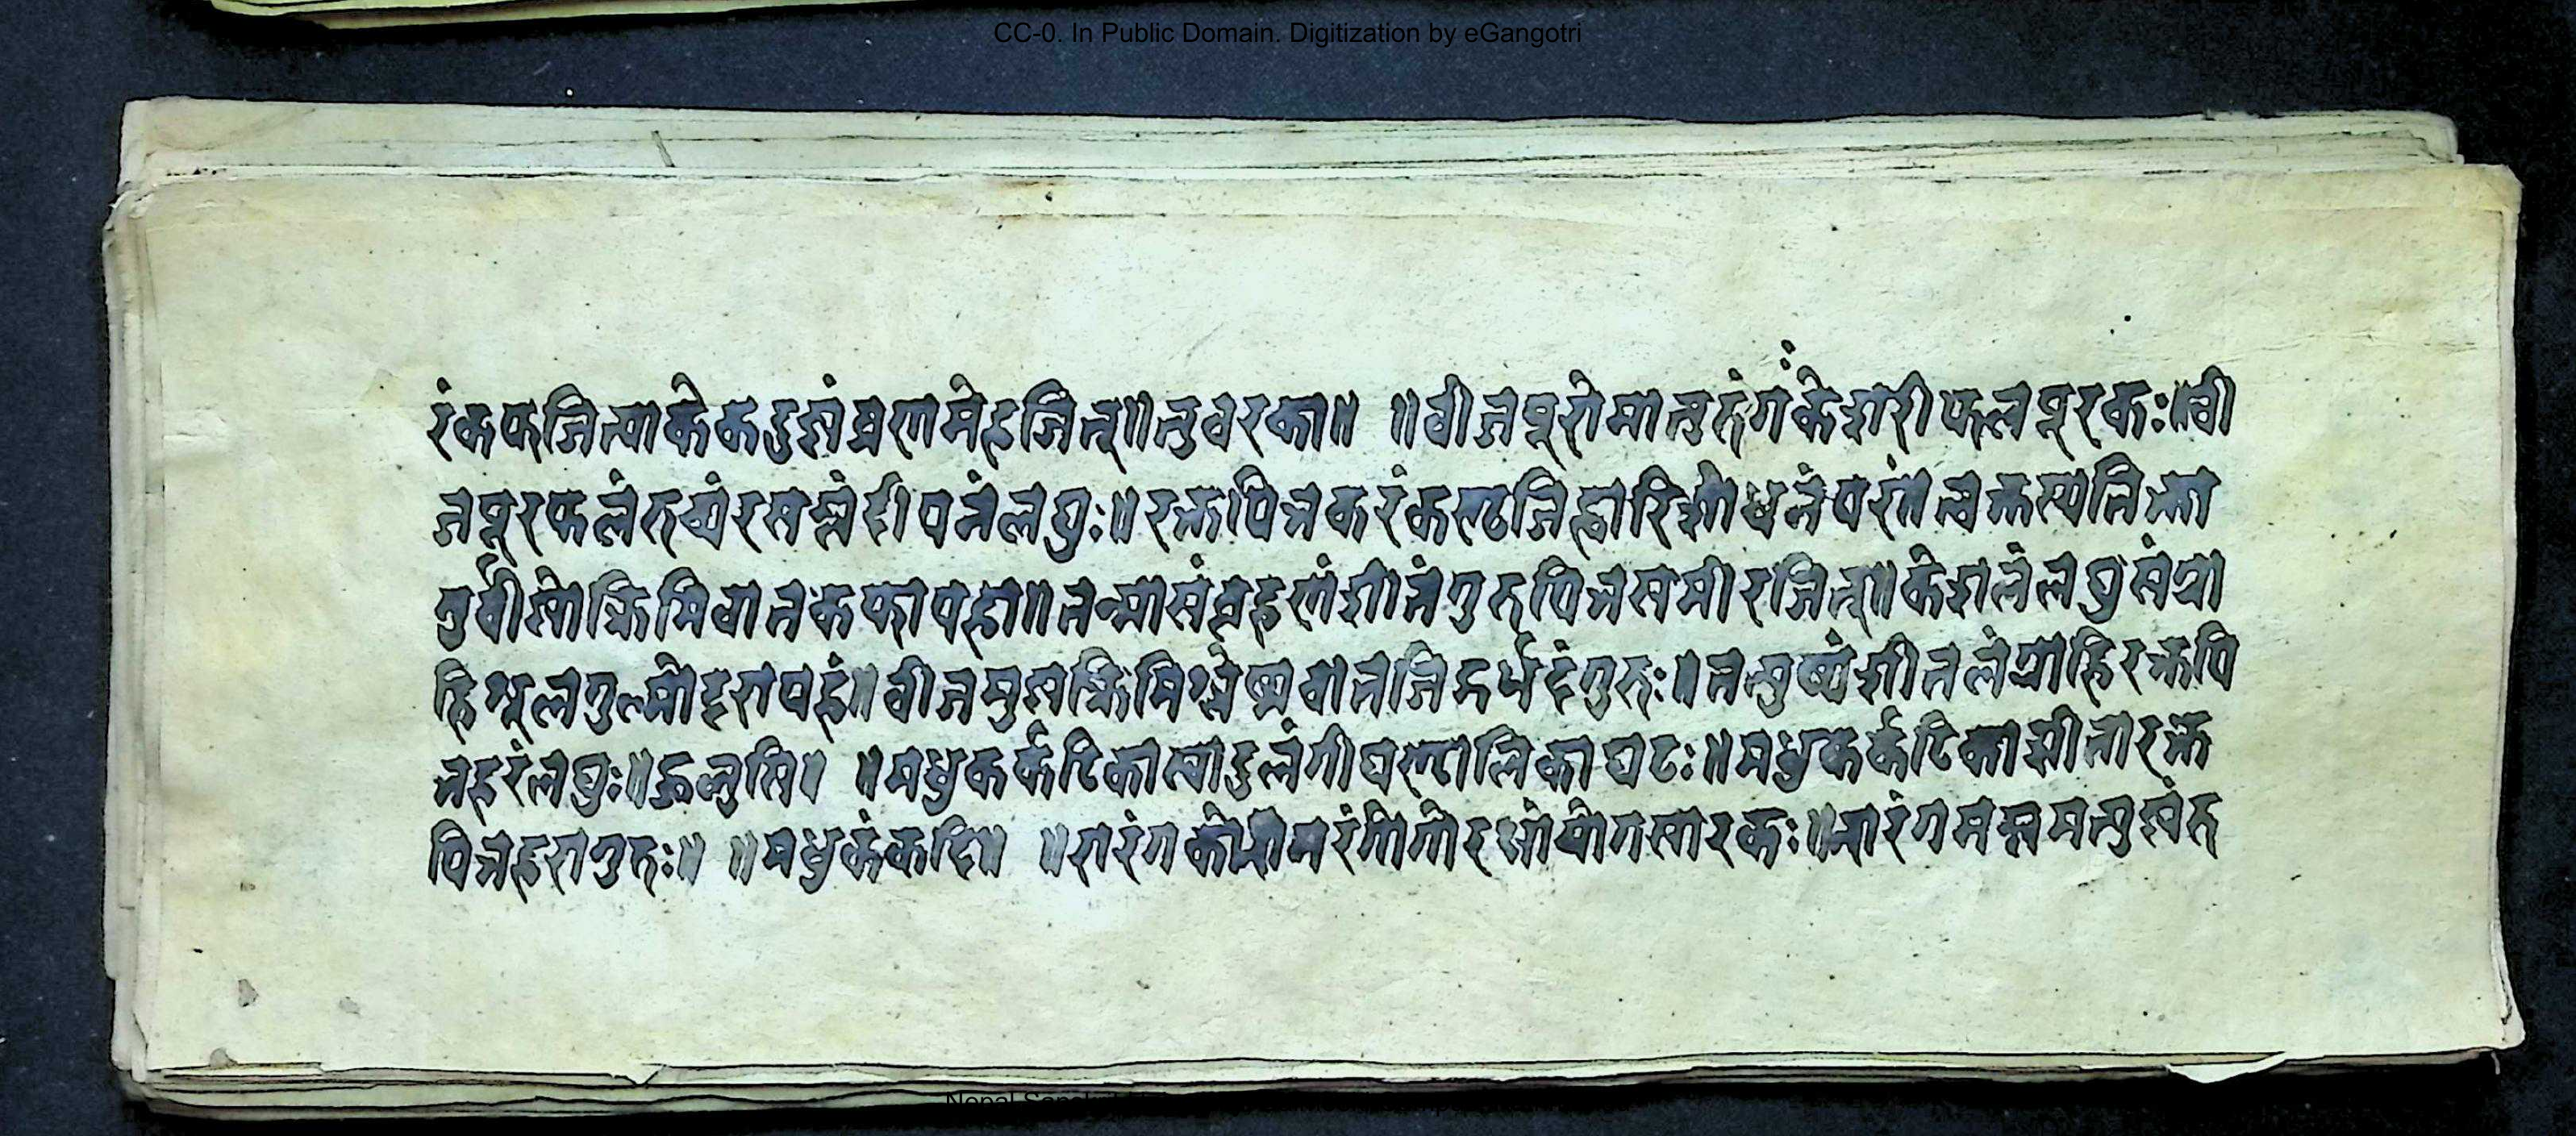 CC-0. In Public Domain. Digitization by eGangotri
रं कफजित्पाके कटूष्णं व्रणमेहजित्॥ तुवरका॥ ॥बीजपूरो मातुलुंगः केशरी फलपूरकः॥ बी
जपूरफलं रुच्यं रसेम्लं दीपनं लघुः॥ रक्तपित्तकरं कण्ठजिह्वा शोधनं परं॥ त्वक्तस्य तिक्ता
गुर्वी स्यात् क्रिमिवातकफापहा॥ तन्मांसं बृंहणं शीतं गुरु पित्तसमीरजित्॥ केशलं लघु संग्रा
हि शूलगुल्मोदरापहं॥ बीजमुष्णं क्रिमिश्लेष्मवातजिद्गर्भदं गुरुः॥ तत्पुष्पं शीतलं ग्राहि रक्तपि
त्तहरं लघुः॥ मधुकर्कटिका स्वादुलंगी घण्टालिका घटः॥ मधुकर्कटिका शीता रक्त
पित्तहरा गुरुः॥ ॥मधुकं कटि॥ ॥नारंग योगसारकः॥ नारंगमम्लमत्युष्णं रु